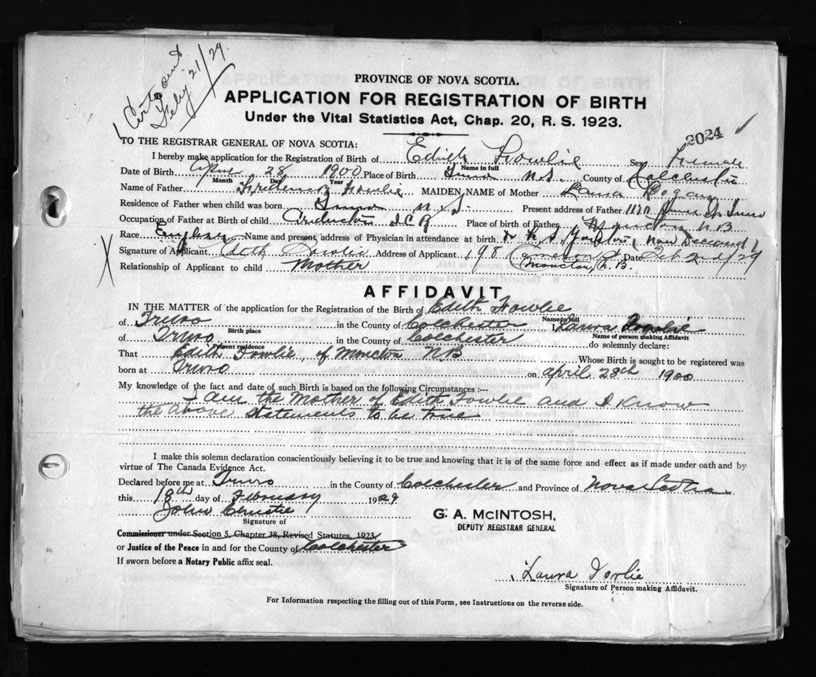 Cert sent
Feby 21/29.
PROVINCE OF NOVA SCOTIA.
APPLICATION FOR REGISTRATION OF BIRTH
Under the Vital Statistics Act, Chap. 20, R. S. 1923.
2024
TO THE REGISTRAR GENERAL OF NOVA SCOTIA:
I hereby make application for the Registration of Birth of Edith Fowlie Sex Female
Name in full
Date of Birth April 28 1900 Place of Birth Truro N.S. County of Colchester
Month Day Year
Name of Father Fowlie MAIDEN NAME of Mother Laura
Residence of Father when child was born Truro N.S. Present address of Father
Occupation of Father at Birth of child I.C.R Place of birth of Father N.B
Race English Name and present address of Physician in attendance at birth Dr (Now Deceased)
Signature of Applicant Edith Fowlie Address of Applicant 198 Moncton, N.B. Date Feb 2nd/29
Relationship of Applicant to child Mother
AFFIDAVIT
IN THE MATTER of the application for the Registration of the Birth of Edith Fowlie
Name in full
of Truro in the County of Colchester I, Laura Fowlie
Birth place Name of person making Affidavit
of Truro in the County of Colchester do solemnly declare:
Present residence
That Edith Fowlie, of Moncton NB Whose Birth is sought to be registered was
born at Truro on April 28th 1900
My knowledge of the fact and date of such Birth is based on the following Circumstances :—
I am the Mother of Edith Fowlie and I Know
the above statements to be true
I make this solemn declaration conscientiously believing it to be true and knowing that it is of the same force and effect as if made under oath and by
virtue of The Canada Evidence Act.
Declared before me at Truro in the County of Colchester and Province of Nova Scotia
this 18th day of February 1929
John Christie
G. A. McINTOSH,
DEPUTY REGISTRAR GENERAL
Signature of
Commissioner under Section 5, Chapter 38, Revised Statutes, 1923,
or Justice of the Peace in and for the County of Colchester
If sworn before a Notary Public affix seal.
Laura Fowlie
Signature of Person making Affidavit.
For Information respecting the filling out of this Form, see Instructions on the reverse side.